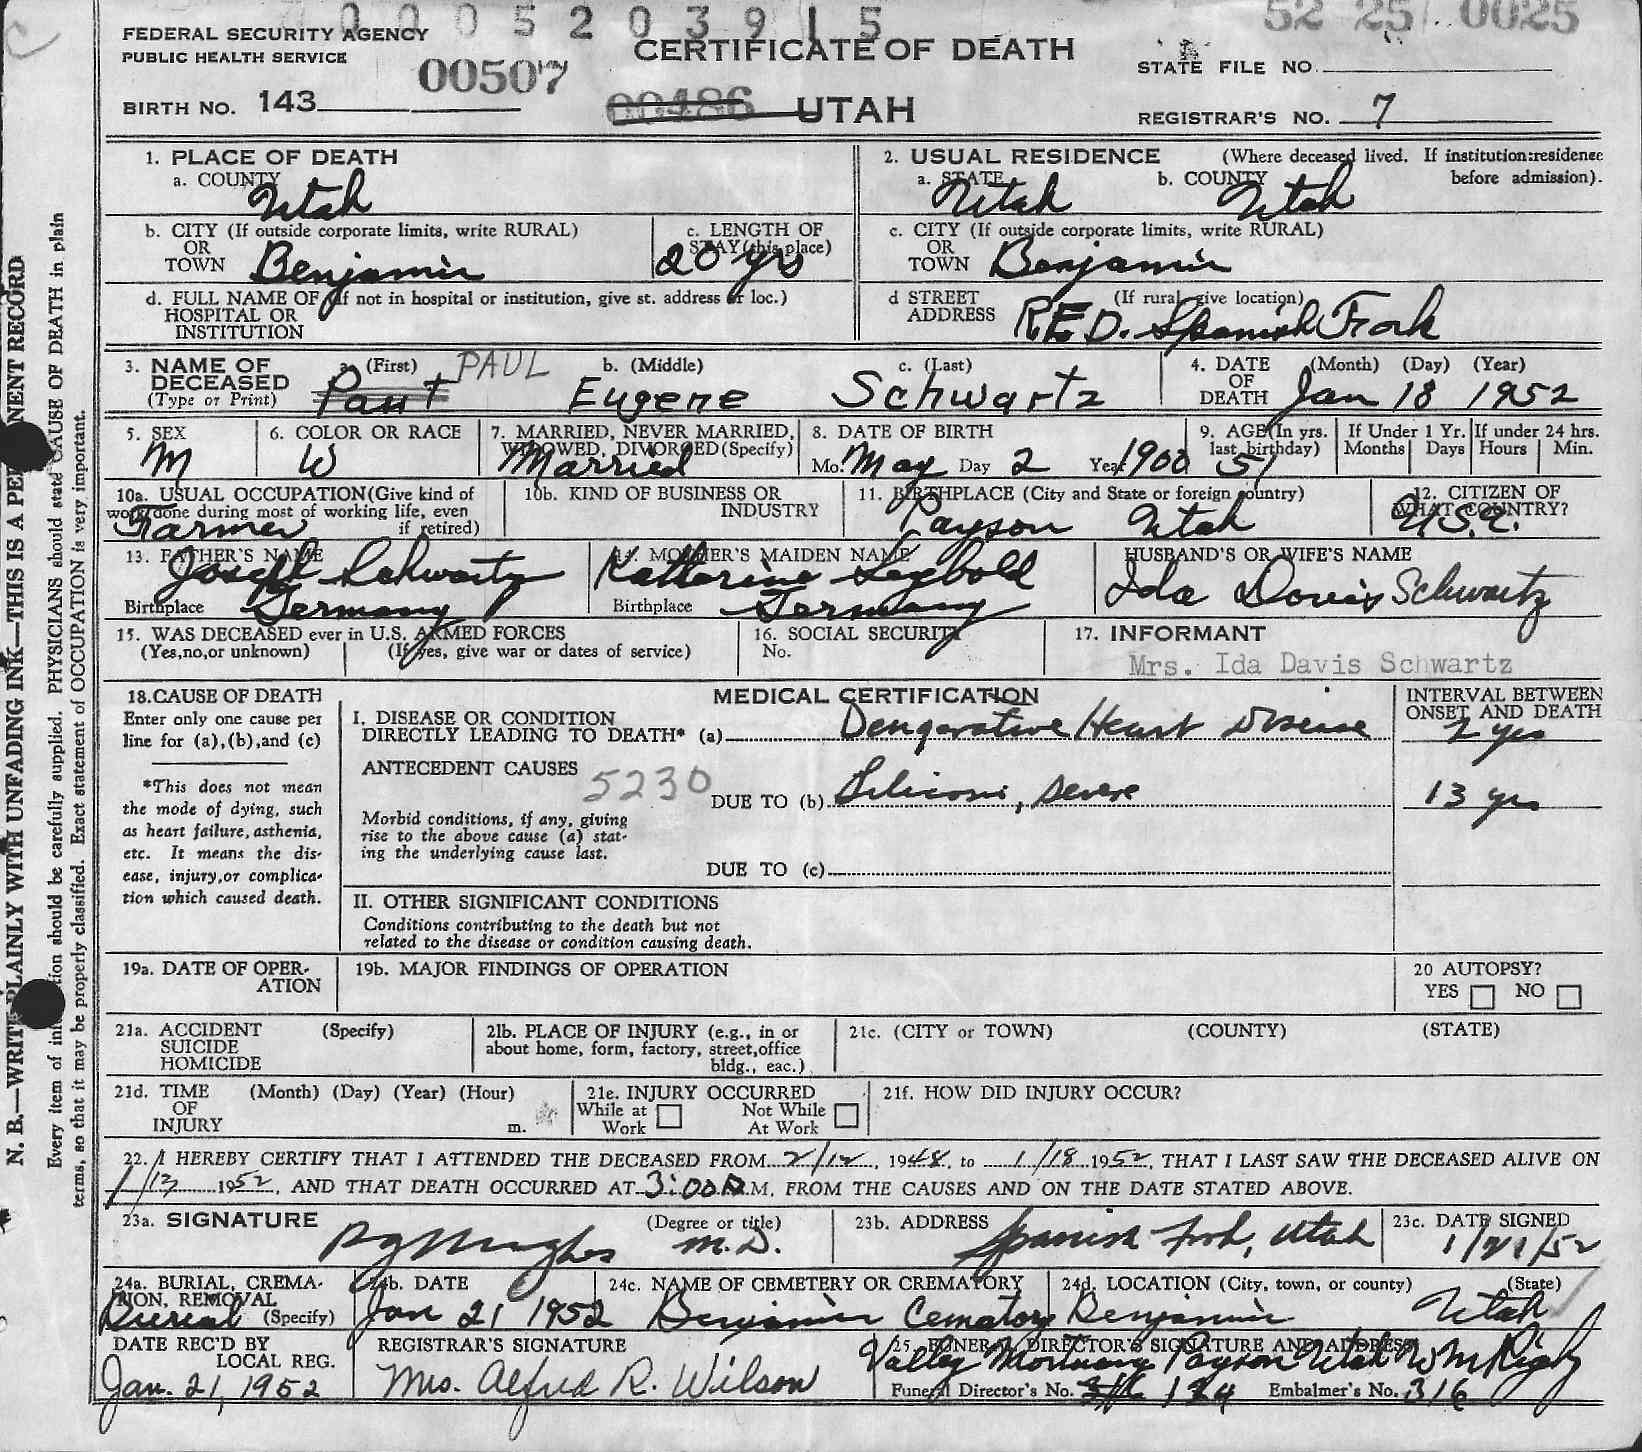 0005203915
52 25 0025
FEDERAL SECURITY AGENCY
PUBLIC HEALTH SERVICE
00507
CERTIFICATE OF DEATH
STATE FILE NO.
BIRTH NO. 143
00486 UTAH
REGISTRAR'S NO. 7
N. B.—WRITE PLAINLY WITH UNFADING INK—THIS IS A PERMANENT RECORD
Every item of information should be carefully supplied. PHYSICIANS should state CAUSE OF DEATH in plain
terms, so that it may be properly classified. Exact statement of OCCUPATION is very important.
1. PLACE OF DEATH
a. COUNTY Utah
2. USUAL RESIDENCE (Where deceased lived. If institution:residence before admission).
a. STATE Utah b. COUNTY Utah
b. CITY (If outside corporate limits, write RURAL)
OR
TOWN Benjamin
c. LENGTH OF
STAY (this place)
20 yrs
c. CITY (If outside corporate limits, write RURAL)
OR
TOWN Benjamin
d. FULL NAME OF (If not in hospital or institution, give st. address or loc.)
HOSPITAL OR
INSTITUTION
d STREET (If rural give location)
ADDRESS R.F.D. Spanish Fork
3. NAME OF a. (First) PAUL b. (Middle) c. (Last)
DECEASED
(Type or Print) Paul Eugene Schwartz
4. DATE (Month) (Day) (Year)
OF
DEATH Jan 18 1952
5. SEX
M
6. COLOR OR RACE
W
7. MARRIED, NEVER MARRIED,
WIDOWED, DIVORCED (Specify)
Married
8. DATE OF BIRTH
Mo. May Day 2 Year 1900
9. AGE (In yrs.
last birthday)
51
If Under 1 Yr.
Months Days
If under 24 hrs.
Hours Min.
10a. USUAL OCCUPATION (Give kind of
work done during most of working life, even
if retired)
Farmer
10b. KIND OF BUSINESS OR
INDUSTRY
11. BIRTHPLACE (City and State or foreign country)
Payson Utah
12. CITIZEN OF
WHAT COUNTRY?
U.S.A.
13. FATHER'S NAME
Joseph Schwartz
Birthplace Germany
14. MOTHER'S MAIDEN NAME
Katherine
Birthplace Germany
HUSBAND'S OR WIFE'S NAME
Ida Davis Schwartz
15. WAS DECEASED ever in U.S. ARMED FORCES
(Yes,no,or unknown) (If yes, give war or dates of service)
16. SOCIAL SECURITY
No.
17. INFORMANT
Mrs. Ida Davis Schwartz
18. CAUSE OF DEATH
Enter only one cause per
line for (a),(b),and (c)
*This does not mean
the mode of dying, such
as heart failure, asthenia,
etc. It means the dis-
ease, injury,or complica-
tion which caused death.
MEDICAL CERTIFICATION
INTERVAL BETWEEN
ONSET AND DEATH
I. DISEASE OR CONDITION
DIRECTLY LEADING TO DEATH* (a) Dengerative Heart Disease 2 yrs
ANTECEDENT CAUSES 5230
DUE TO (b) Silicosis, severe 13 yrs
Morbid conditions, if any, giving
rise to the above cause (a) stat-
ing the underlying cause last.
DUE TO (c)
II. OTHER SIGNIFICANT CONDITIONS
Conditions contributing to the death but not
related to the disease or condition causing death.
19a. DATE OF OPER-
ATION
19b. MAJOR FINDINGS OF OPERATION
20 AUTOPSY?
YES NO
21a. ACCIDENT (Specify)
SUICIDE
HOMICIDE
21b. PLACE OF INJURY (e.g., in or
about home, form, factory, street,office
bldg., eac.)
21c. (CITY or TOWN) (COUNTY) (STATE)
21d. TIME (Month) (Day) (Year) (Hour)
OF
INJURY m.
21e. INJURY OCCURRED
While at Work Not While At Work
21f. HOW DID INJURY OCCUR?
22. I HEREBY CERTIFY THAT I ATTENDED THE DECEASED FROM 2/12, 1948, to 1/18 1952, THAT I LAST SAW THE DECEASED ALIVE ON
1/13 1952, AND THAT DEATH OCCURRED AT 3:00 A.M. FROM THE CAUSES AND ON THE DATE STATED ABOVE.
23a. SIGNATURE (Degree or title)
Hughes M.D.
23b. ADDRESS
Spanish Fork, Utah
23c. DATE SIGNED
1/21/52
24a. BURIAL, CREMA-
TION, REMOVAL
(Specify)
Burial
24b. DATE
Jan 21 1952
24c. NAME OF CEMETERY OR CREMATORY
Benjamin Cematory
24d. LOCATION (City, town, or county) (State)
Benjamin Utah
DATE REC'D BY
LOCAL REG.
Jan. 21, 1952
REGISTRAR'S SIGNATURE
Mrs. Alfred R. Wilson
25. FUNERAL DIRECTOR'S SIGNATURE AND ADDRESS
Valley Mortuary Payson Utah W M Rigby
Funeral Director's No. 316 134 Embalmer's No. 316